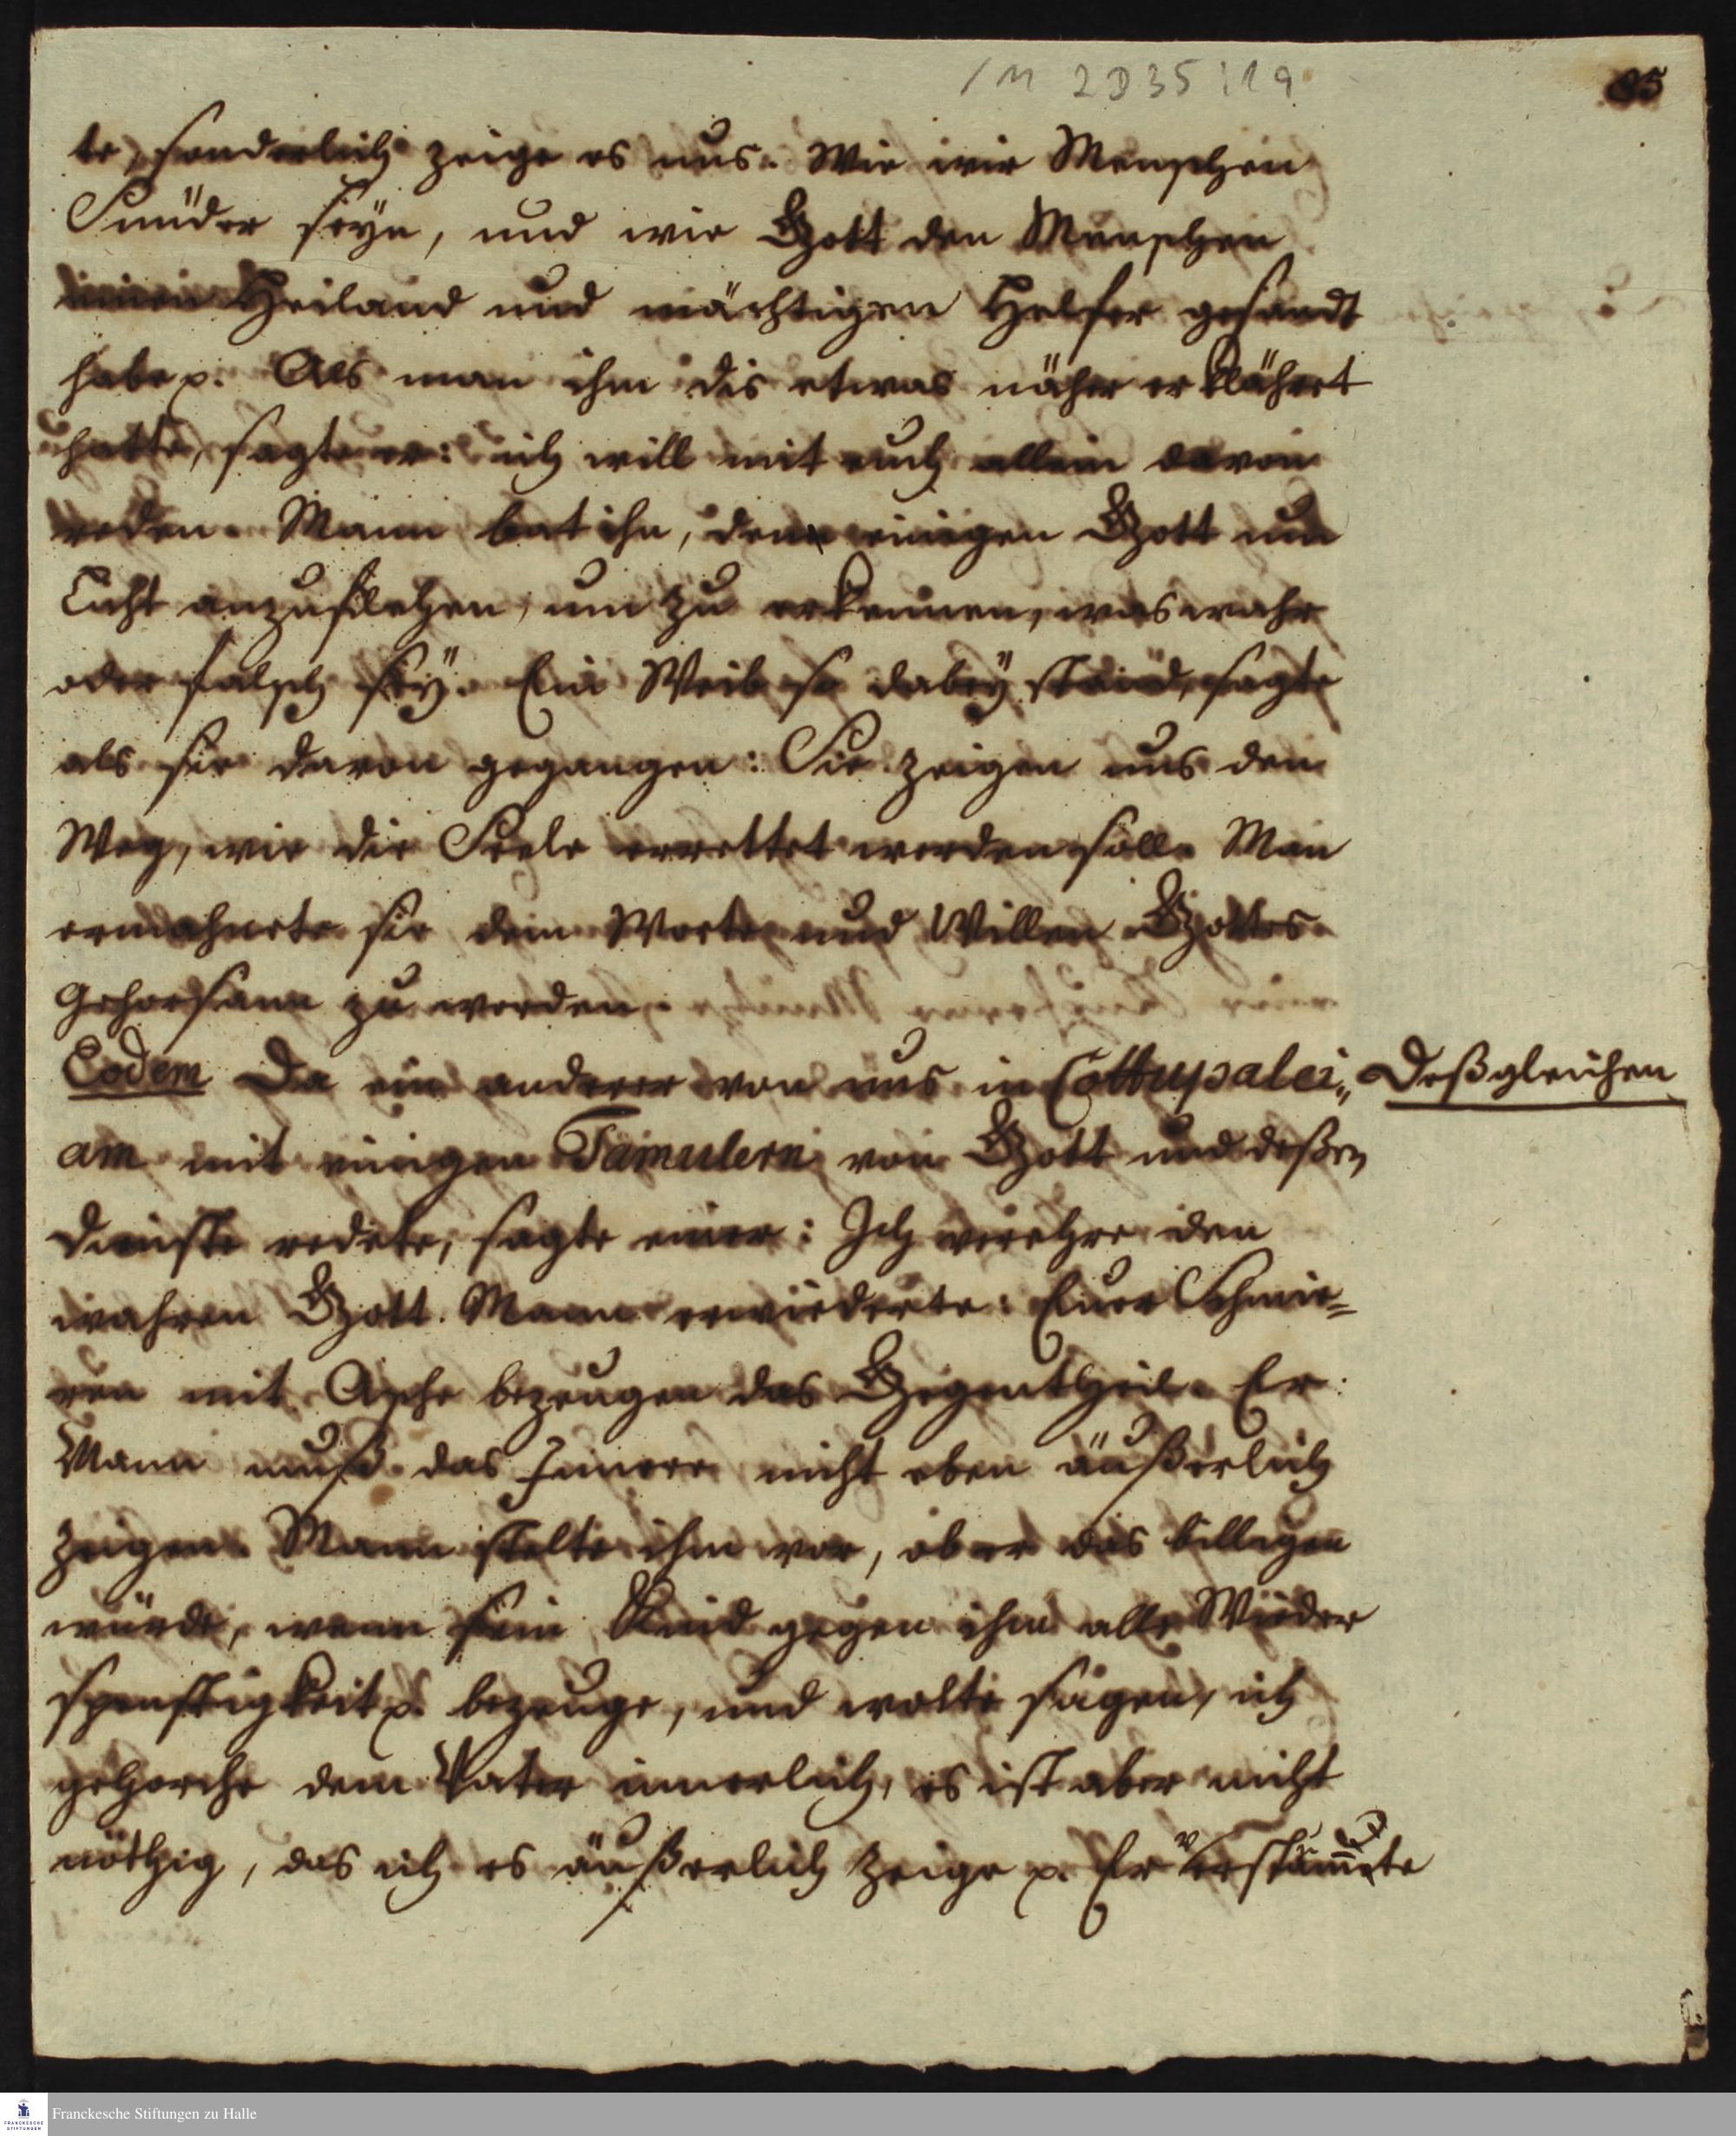 /M 2D35:19
85
te, sonderlich zeige es uns. Wie wir Menschen
Sünder seÿn, und wie Gott den Menschen
einen Heiland und mächtigen Helfer gesandt
habe p. Als man ihm dis etwas näher erklährt
hatte, sagte er: ich will mit euch allein davon
reden. Mann bat ihn, den einigen Gott um
Licht anzuflehen, um zu erkennen, was wahr
oder falsch seÿ. Ein Weib so dabeÿ stand, sagte
als sie davon gegangen: Sie zeigen uns den
Weg, wie die Seele errettet werden soll. Man
ermahnete sie dem Worte und Willen Gottes
gehorsam zu werden.
Eodem Da ein anderer von uns in Cottupalei„
Deßgleichen
am mit einigen Tamulern von Gott und deßen
Dienste redete, sagte einer: Ich verehre den
wahren Gott. Mann erwiederte: Euer Schmie=
ren mit Asche bezeugen das Gegentheil. Er:
Mann muß das Innere nicht eben äußerlich
zeigen. Mann stelte ihm vor, ob er das billigen
würde, wenn sein Kind gegen ihm alle Wieder
spenstigkeit p. bezeuge, und wolte sagen, ich
gehorche dem Vater innerlich, es ist aber nicht
nöthig, das ich es äußerlich zeige p. Er verstummte
Franckesche Stiftungen zu Halle
FRANCKESCHE
STIFTUNGEN